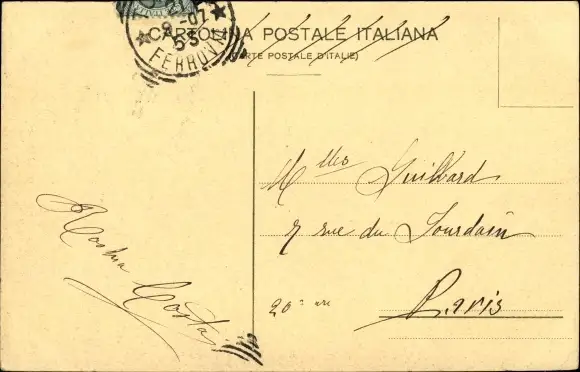 CARTOLINA POSTALE ITALIANA
(CARTE POSTALE D'ITALIE)
FERROVIA
Mlles Guilvard
7 rue du Jourdain
20e arr
Paris
Costa